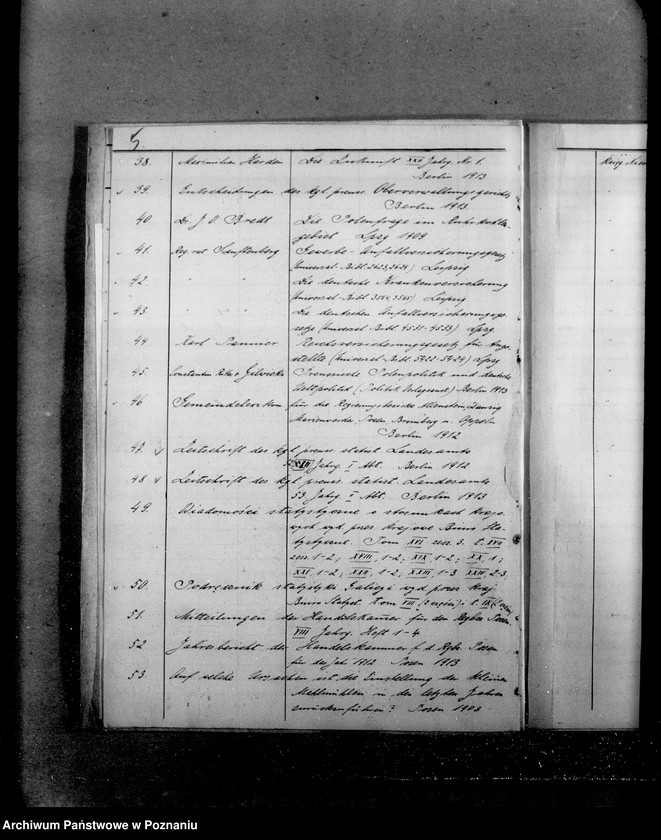 5
38. Maximilian Harden Die Zukunft XXII Jahrg. Nr. 1.
Berlin 1913
39. Entscheidungen des kgl. preuss. Oberverwaltungsgerichts
Berlin 1913
40. Dr. J. V. Bredt Die Polenfrage im Ruhrkohlen-
gebiet Lpzg 1909
41. Reg. rat Gewerbe-Unfallversicherungsgesetz
(Universal-Bibl. 2623, 2624) Leipzig
42. " " Die deutsche Krankenversicherung
(Universal-Bibl. 3564, 3565) Leipzig
43. " " Die deutschen Unfallversicherungsge-
setze (Universal Bibl. 4531-4533) Lpzg
44 Karl Pannier Reichsversicherungsgesetz für Ange-
stellte (Universal-Bibl. 5422-5424) Lpzg
45. Preussische Polenpolitik und deutsche
Weltpolitik (Politik Verlagsanst.) Berlin 1913
46 Gemeindelexikon für die Regierungsbezirke Allenstein, Danzig
Marienwerder, Posen Bromberg u. Oppeln
Berlin 1912
47. Zeitschrift des kgl. preuss. statist. Landesamts
Jahrg. I Abt. Berlin 1912
48 Zeitschrift des kgl. preuss. statist. Landesamts
53 Jahrg. I Abt. Berlin 1913
49. Wiadomości statystyczne o stosunkach krajo-
wych wyd. przez Krajowe Biuro Sta-
tystyczne. Tom XVI zesz. 3. t. XVII
zesz 1-2; XVIII, 1-2; XIX, 1-2; XX, 1;
XXI, 1-2; XXII, 1-2; XXIII, 1-3 XXIV, 2-3.
50. Podręcznik statystyki Galicyi wyd. przez Kraj.
Biuro Statyst. tom VIII i t. IX
51. Mitteilungen der Handelskammer für den Rgbz. Posen
VIII Jahrg. Heft 1-4
52 Jahresbericht der Handelskammer f. d. Rgbz. Posen
für das Jahr 1912 Posen 1913
53. Auf welche Ursachen ist die Einstellung der kleinen
Mehlmühlen in den letzten Jahren
zurückzuführen? Posen 1903
Archiwum Państwowe w Poznaniu